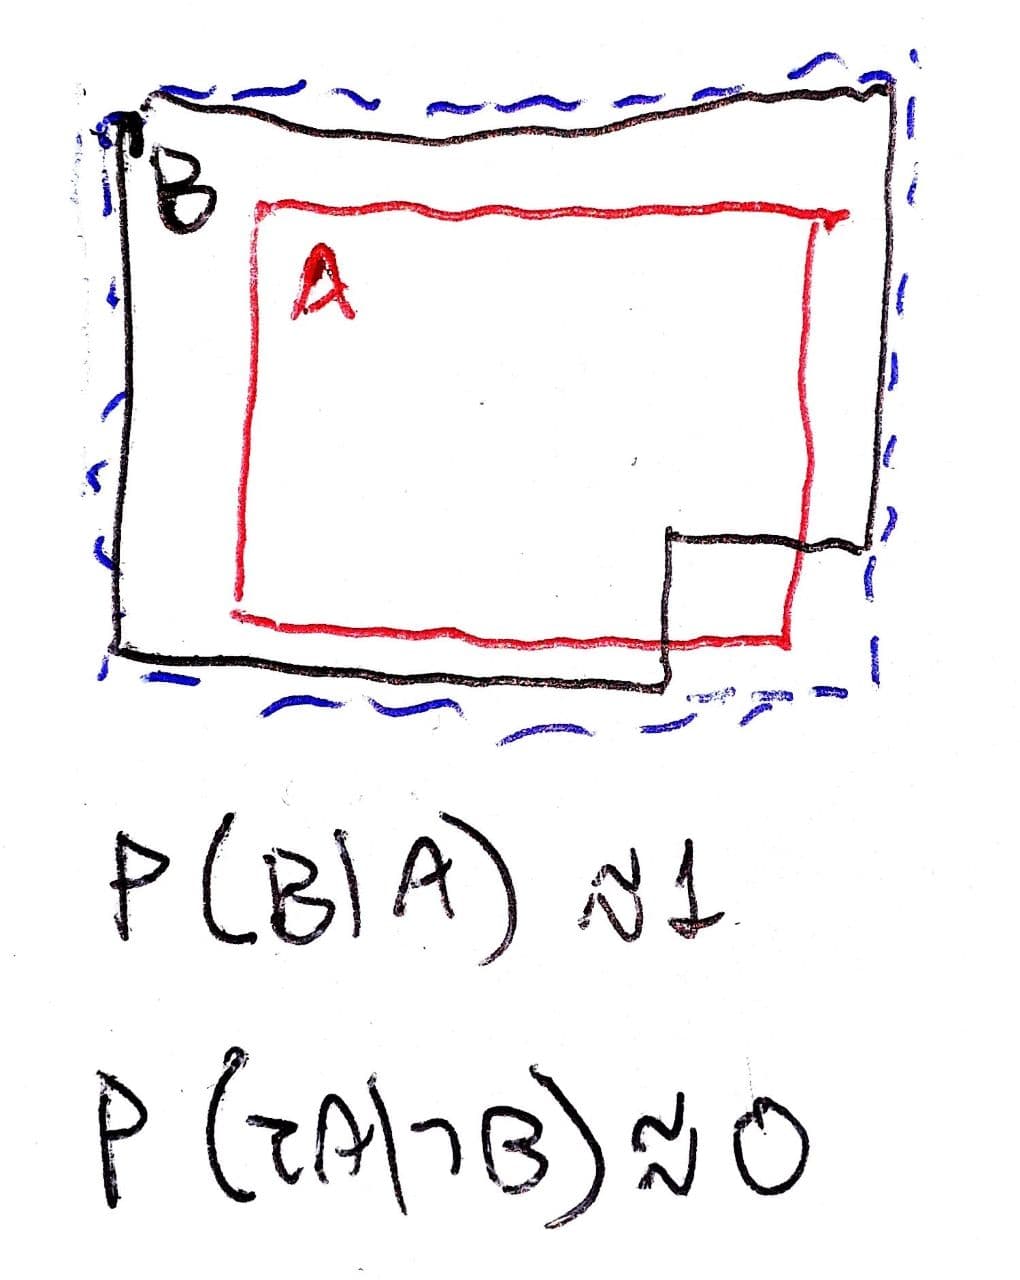 B
A
P(B|A) ≈ 1
P(¬A|¬B) ≈ 0